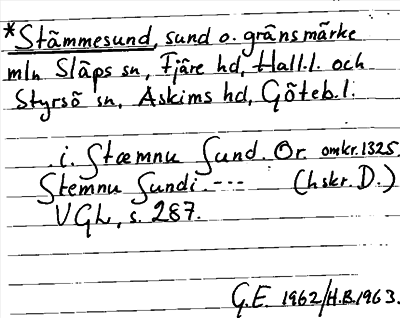 *Stämmesund, sund o. gränsmärke
mln Släps sn, Fjäre hd, Hall.l. och
Styrsö sn, Askims hd, Göteb.l:
.i. Stæmnu Sund. Or. omkr.1325.
Stemnu Sundi. --- (hskr. D.)
VGL, s. 287.
G.E. 1962/H.B.1963.